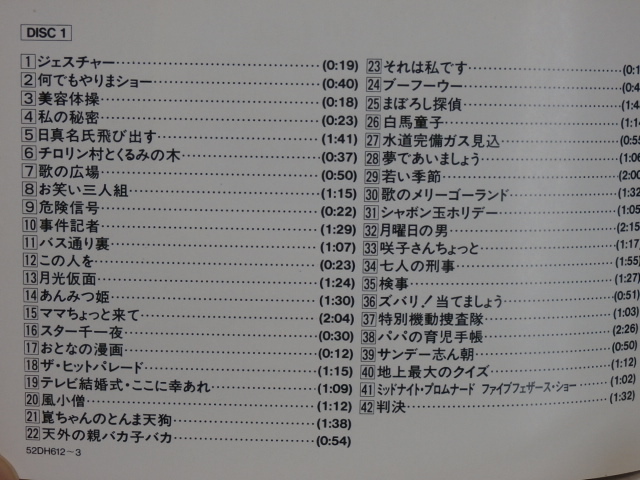 DISC 1
1 ジェスチャー (0:19)
2 何でもやりまショー (0:40)
3 美容体操 (0:18)
4 私の秘密 (0:23)
5 日真名氏飛び出す (1:41)
6 チロリン村とくるみの木 (0:37)
7 歌の広場 (0:50)
8 お笑い三人組 (1:15)
9 危険信号 (0:22)
10 事件記者 (1:29)
11 バス通り裏 (1:07)
12 この人を (0:23)
13 月光仮面 (1:24)
14 あんみつ姫 (1:30)
15 ママちょっと来て (2:04)
16 スター千一夜 (0:30)
17 おとなの漫画 (0:12)
18 ザ・ヒットパレード (1:15)
19 テレビ結婚式・ここに幸あれ (1:09)
20 風小僧 (1:12)
21 崑ちゃんのとんま天狗 (1:38)
22 天外の親バカ子バカ (0:54)
52DH612~3
23 それは私です
24 ブーフーウー
25 まぼろし探偵
26 白馬童子
27 水道完備ガス見込
28 夢であいましょう
29 若い季節 (2:00
30 歌のメリーゴーランド (1:32
31 シャボン玉ホリデー (1:05
32 月曜日の男 (2:15
33 咲子さんちょっと (1:17)
34 七人の刑事 (1:55)
35 検事 (1:27)
36 ズバリ!当てましょう (0:51)
37 特別機動捜査隊 (1:03)
38 パパの育児手帳 (2:26)
39 サンデー志ん朝 (0:50)
40 地上最大のクイズ (1:12)
41 ミッドナイト・プロムナード ファイブフェザース・ショー (1:02)
42 判決 (1:32)